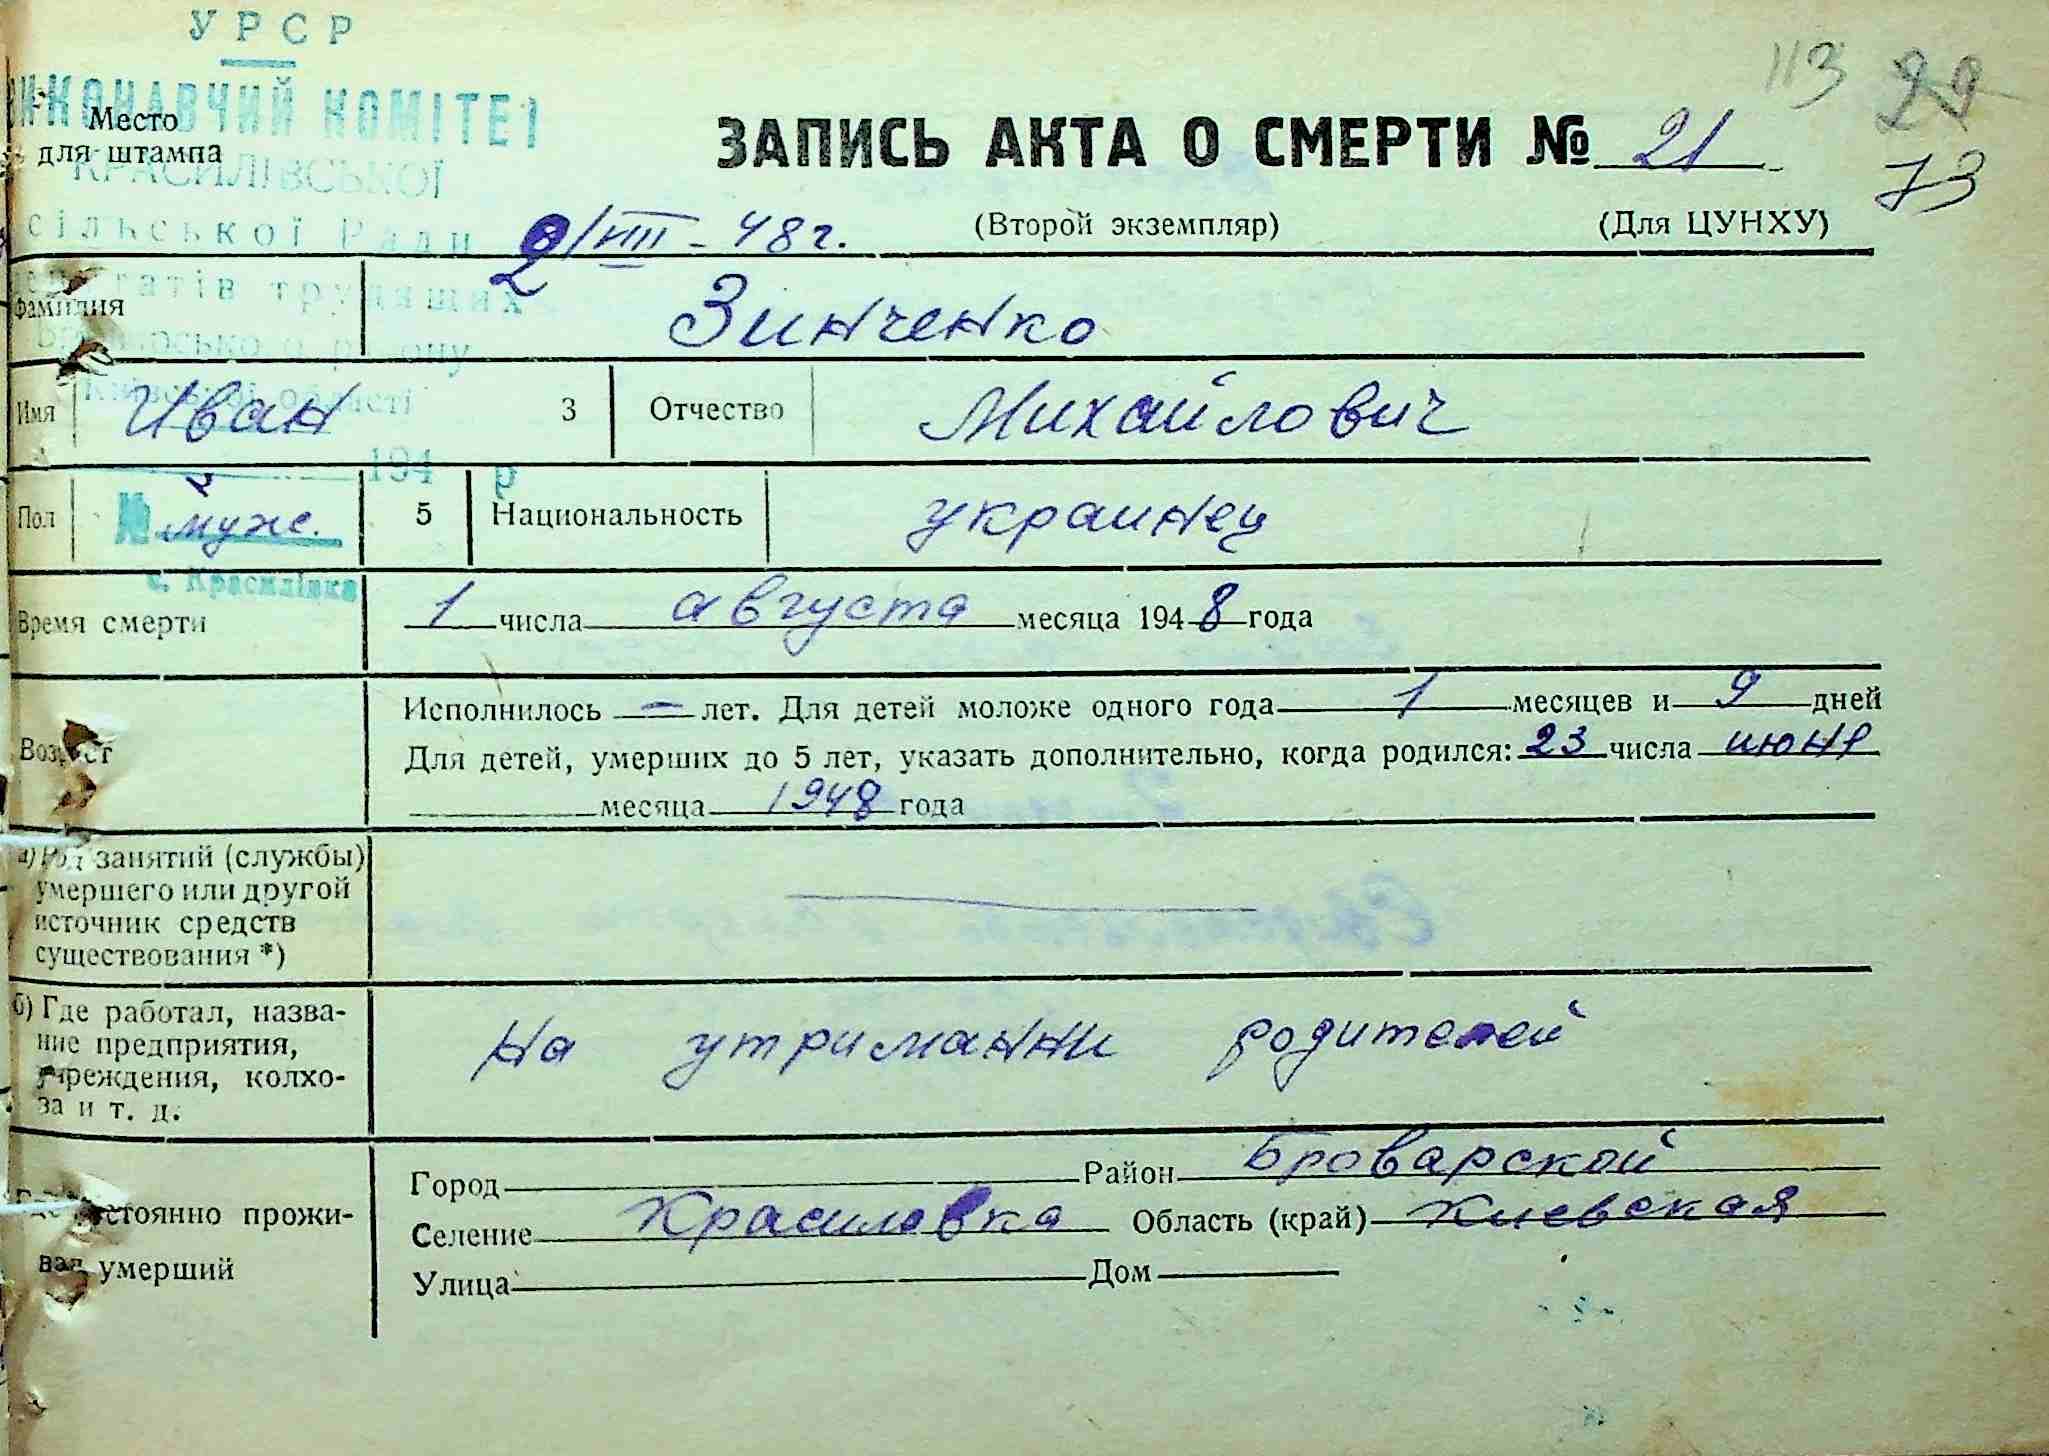 УРСР
ИКОНАВЧИЙ КОМІТЕТ
Место
для штампа
КРАСИЛІВСЬКОЇ
сільської Ради
113 29
ЗАПИСЬ АКТА О СМЕРТИ № 21
73
2/VIII - 48 г.
(Второй экземпляр) (Для ЦУНХУ)
трудящих
Фамилия Зинченко
району
Київської області
Имя Иван 3 Отчество Михайлович
194 р
Пол муж. 5 Национальность украинец
№
с. Красилівка
Время смерти 1 числа августа месяца 1948 года
Возраст Исполнилось — лет. Для детей моложе одного года 1 месяцев и 9 дней
Для детей, умерших до 5 лет, указать дополнительно, когда родился: 23 числа июня
месяца 1948 года
а) Род занятий (службы)
умершего или другой
источник средств
существования *)
б) Где работал, назва-
ние предприятия,
учреждения, колхо-
за и т. д.
на утриманни родителей
Где постоянно прожи-
вал умерший
Город Район Броварской
Селение Красиловка Область (край) Киевская
Улица Дом